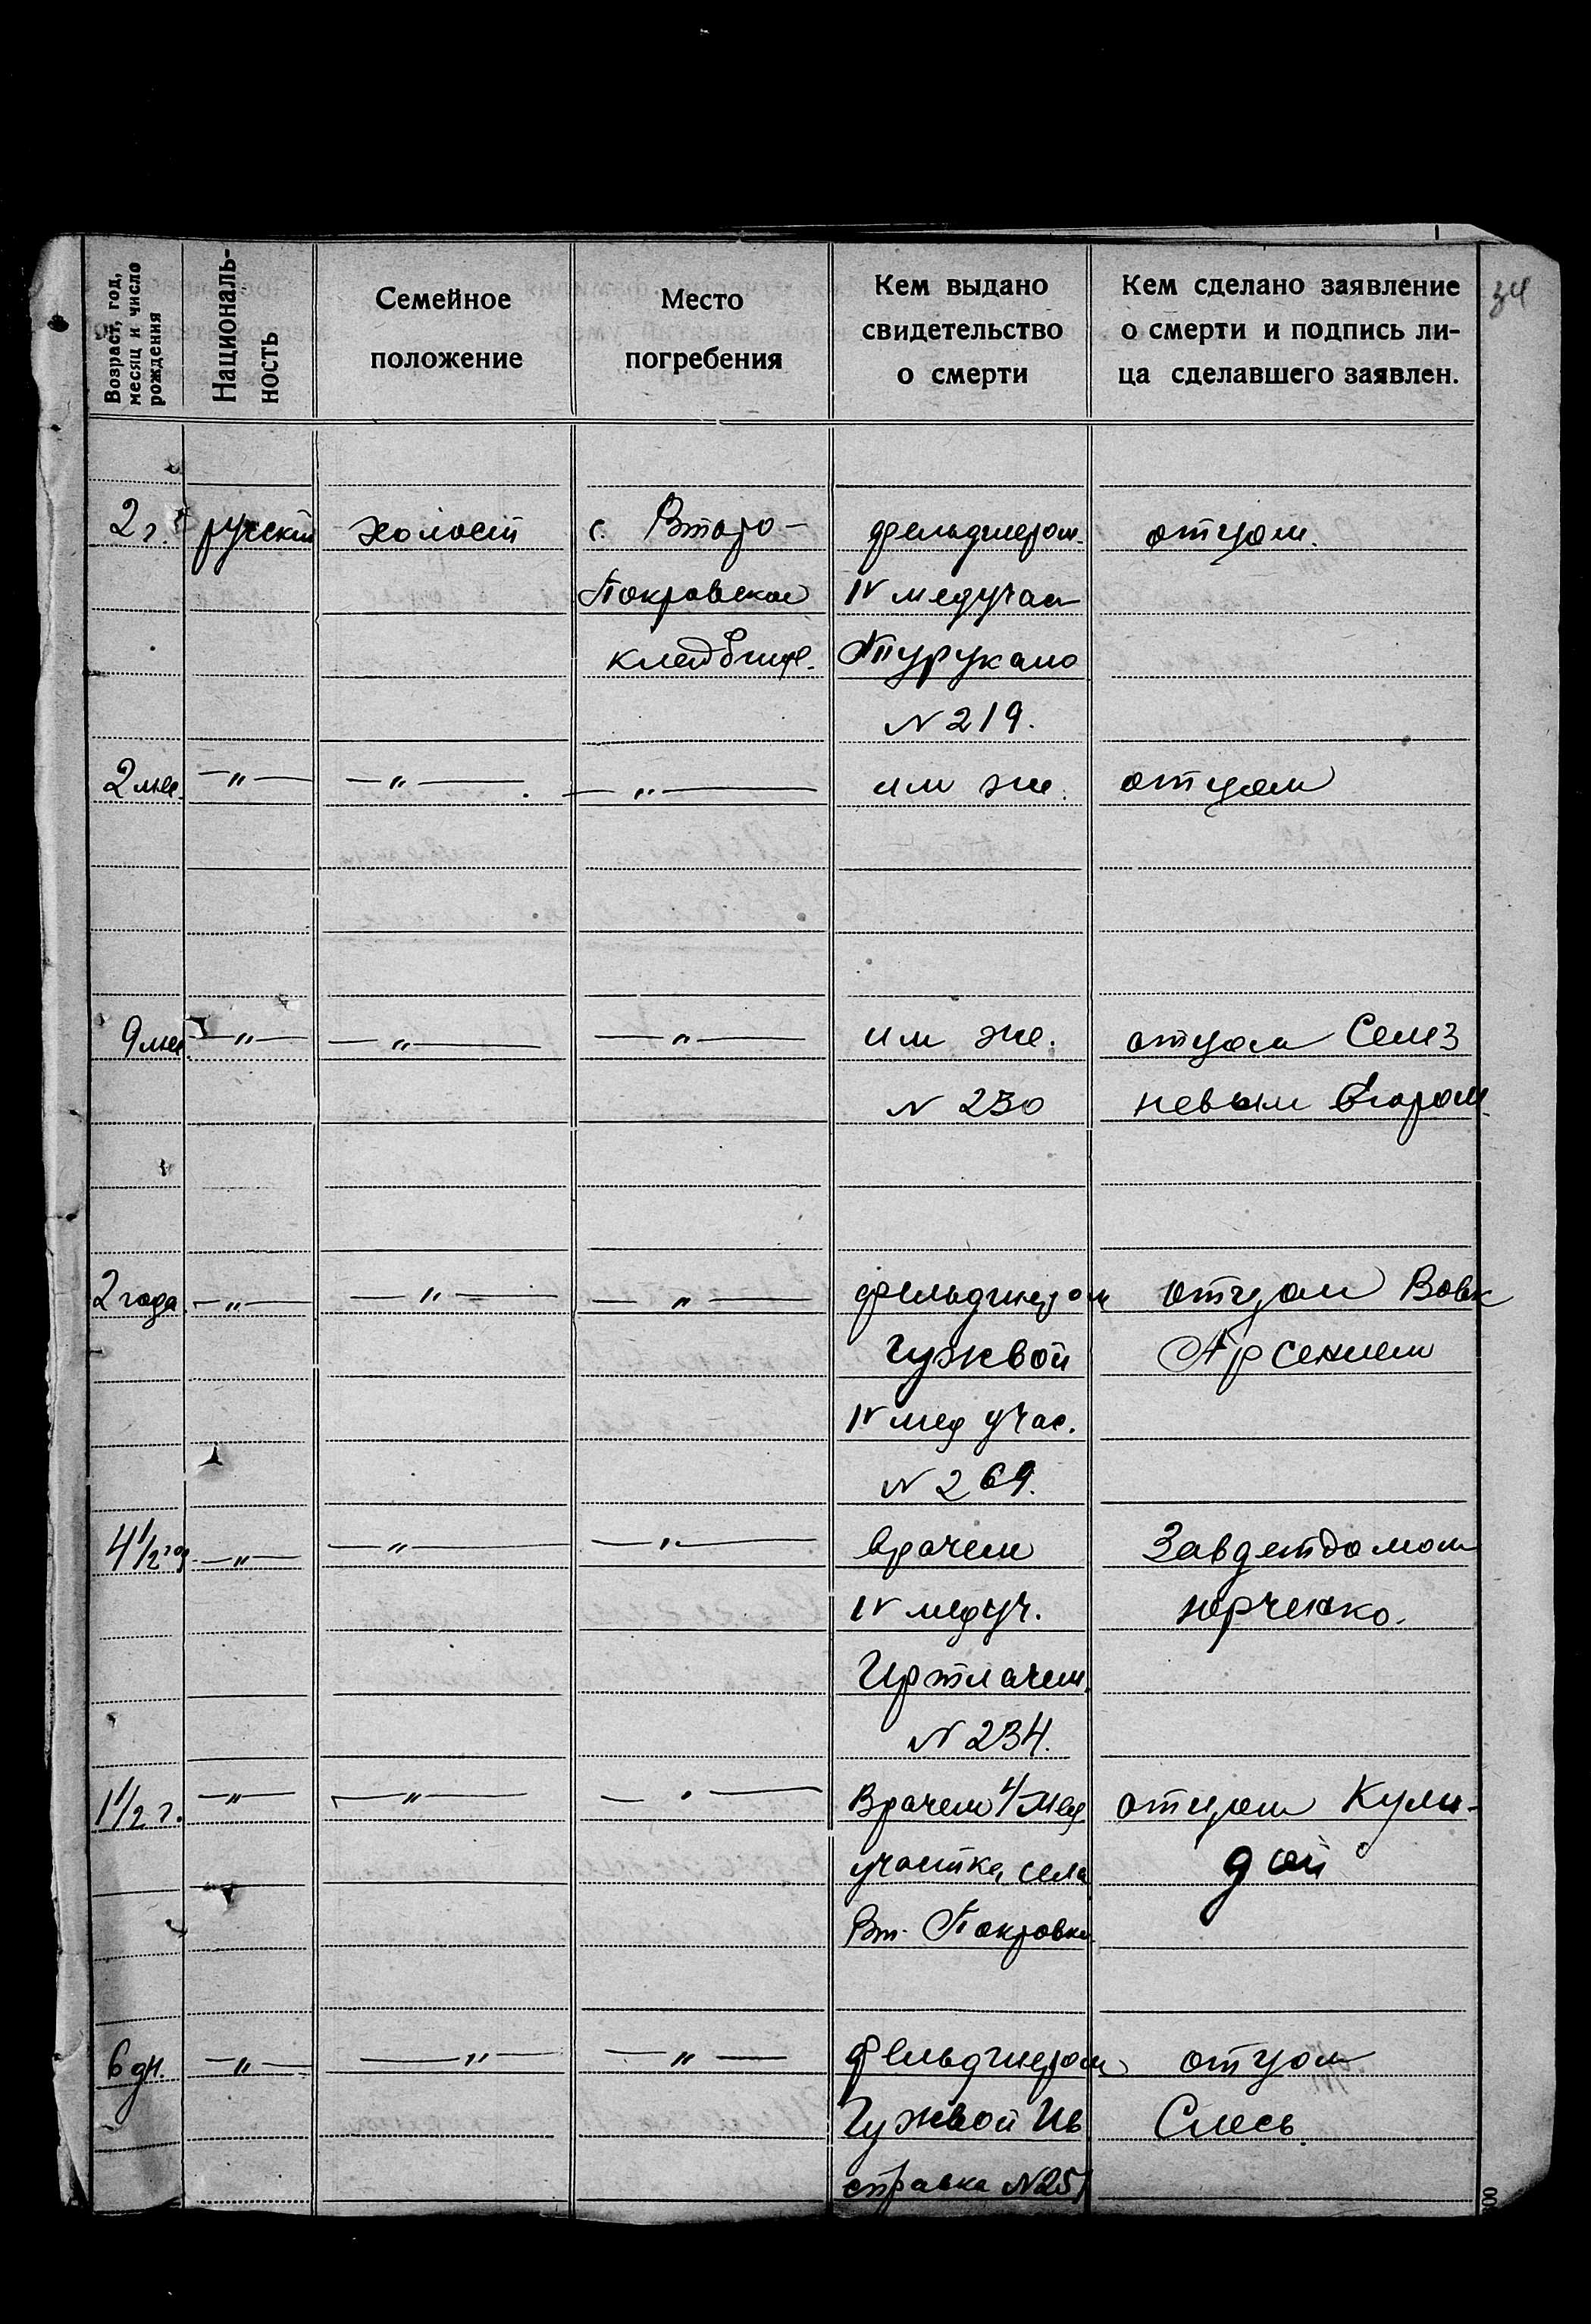 Возраст, год,
месяц и число
рождения
Националь-
ность
Семейное
положение
Место
погребения
Кем выдано
свидетельство
о смерти
Кем сделано заявление
о смерти и подпись ли-
ца сделавшего заявлен.
34
2 г. русский холост с. Втаро- фельдшером отцом.
Покровское IV медучас
кладбище.
N 219.
2 мес. —"— —"— —"— им же. отцом
9 мес —"— —"— —"— им же. отцом Селез
N 230 невым Егором
2 года. —"— —"— —"— фельдшером отцом Вовк
Гужвой Арсением
IV мед учас.
N 269.
4 1/2 год —"— —"— —"— врачем Завдетдомом
IV медуч.
N 234.
1 1/2 г. —"— —"— —"— Врачем 4/мед отцом Кули-
участка, села дой
Вт. Покровки
6 дн. —"— —"— —"— фельдшером отцом
Гужвой Ив Слесь
справка N 251